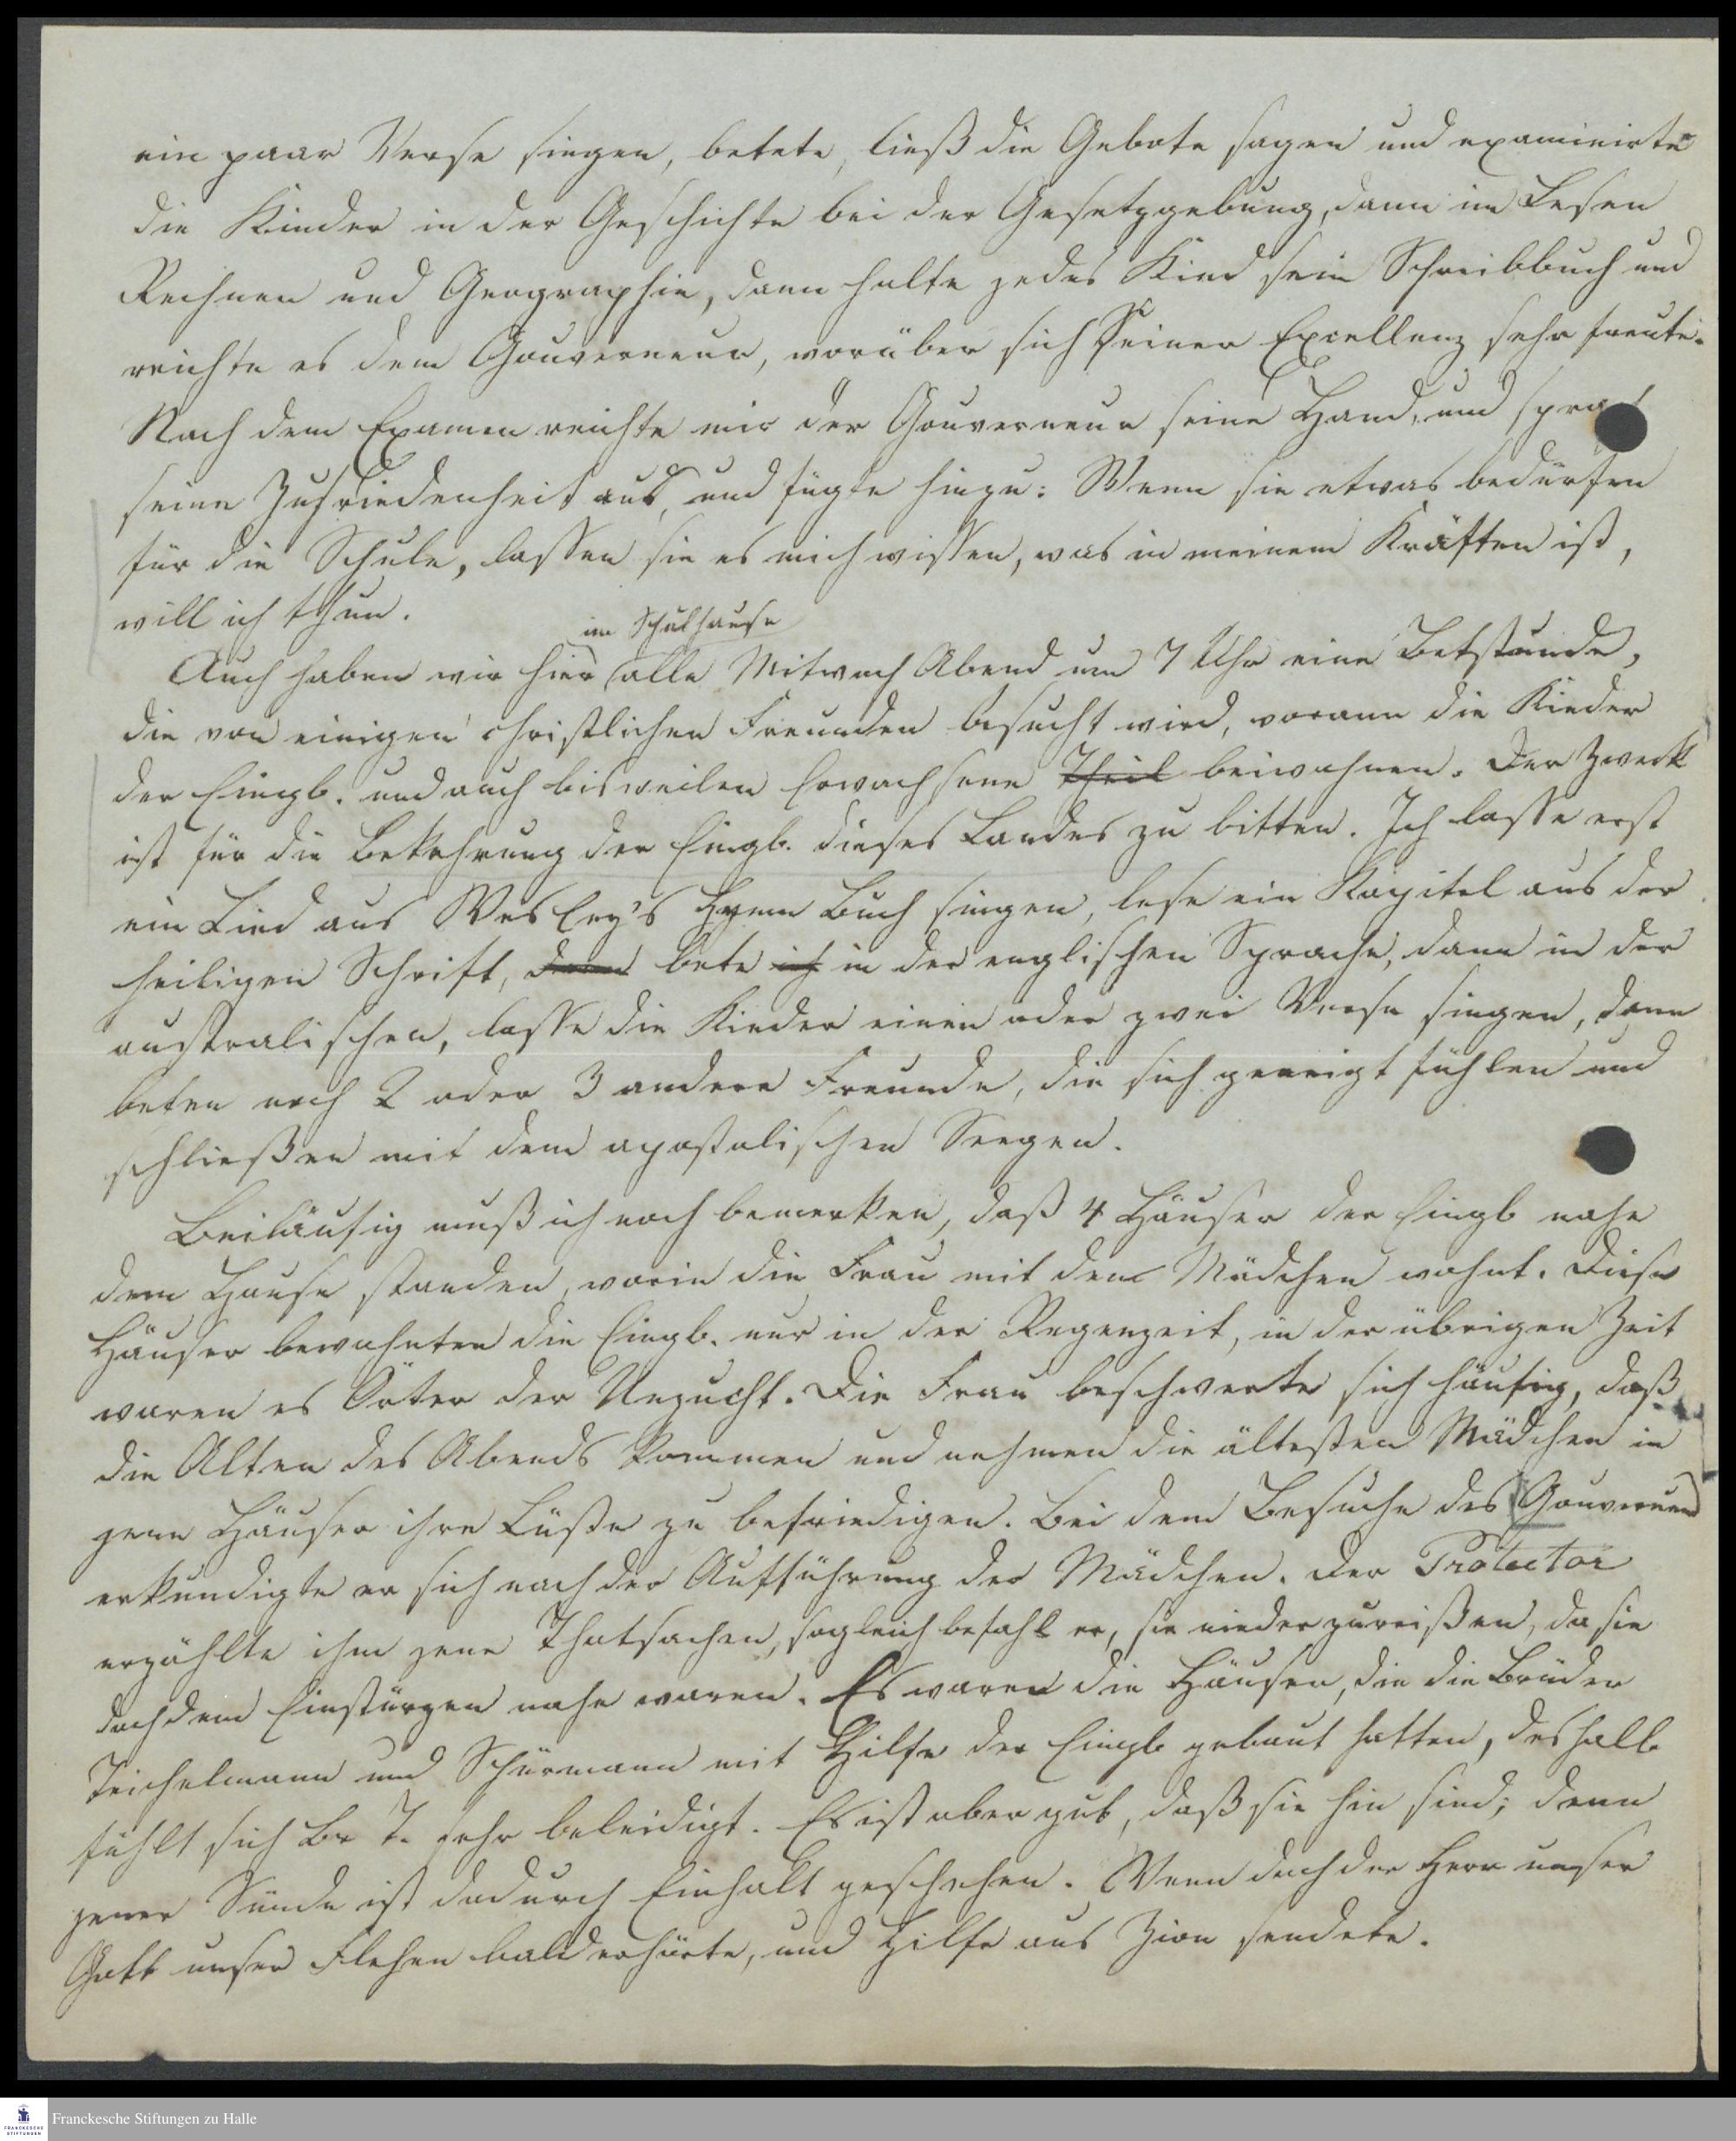 ein paar Verse singen, betete, ließ die Gebote sagen und examinirte
die Kinder in der Geschichte bei der Gesetzgebung, dann im Lesen
Rechnen und Geographie, dann holte jedes Kind sein Schreibbuch und
reichte es dem Gouverneur, worüber sich Seiner Excellenz sehr freute.
Nach dem Examen reichte mir der Gouverneur seine Hand, und sprach
seine Zufriedenheit aus, und fügte hinzu: Wenn sie etwas bedürfen
für die Schule, lassen sie es mich wissen, was in meinem Kräften ist,
will ich thun.
im Schulhause
Auch haben wir hier alle Mitwoch Abend um 7 Uhr eine Betstunde,
die von einigen christlichen Freunden besucht wird, worann die Kinder
der Eingb. und auch bisweilen Erwachsene Theil beiwohnen. Der Zweck
ist für die Bekehrung der Eingb. dieses Landes zu bitten. Ich lasse erst
ein Lied aus Wesley's Hymn Buch singen, lese ein Kapitel aus der
heiligen Schrift, dann bete ich in der englischen Sprache, dann in der
australischen, lasse die Kinder einen oder zwei Verse singen, dann
beten noch 2 oder 3 andere Freunde, die sich geneigt fühlen und
schließen mit dem apostolischen Seegen.
Beiläufig muß ich noch bemerken, daß 4 Häuser der Eingb nahe
dem Hause standen, worin die Frau mit den Mädchen wohnt. Diese
Häuser bewohnten die Eingb. nur in der Regenzeit, in der übrigen Zeit
waren es Örter der Unzucht. Die Frau beschwerte sich häufig, daß
die Alten des Abends kommen und nehmen die ältesten Mädchen in
jene Häuser ihre Lüste zu befriedigen. Bei dem Besuche des Gouverneurs
erkundigte er sich nach der Aufführung der Mädchen. Der Protector
erzählte ihm jene Thatsachen, sogleich befahl er, sie niederzureißen, da sie
doch dem Einstürzen nahe waren. Es waren die Häuser, die die Brüder
Teichelmann und Schürmann mit Hilfe der Eingb gebaut hatten, deshalb
fühlt sich Br T. sehr beleidigt. Es ist aber gut, daß sie hin sind; denn
jener Sünde ist dadurch Einhalt geschehen. Wenn doch der Herr unser
Gott unser Flehen bald erhörte, und Hilfe aus Zion sendete.
Franckesche Stiftungen zu Halle